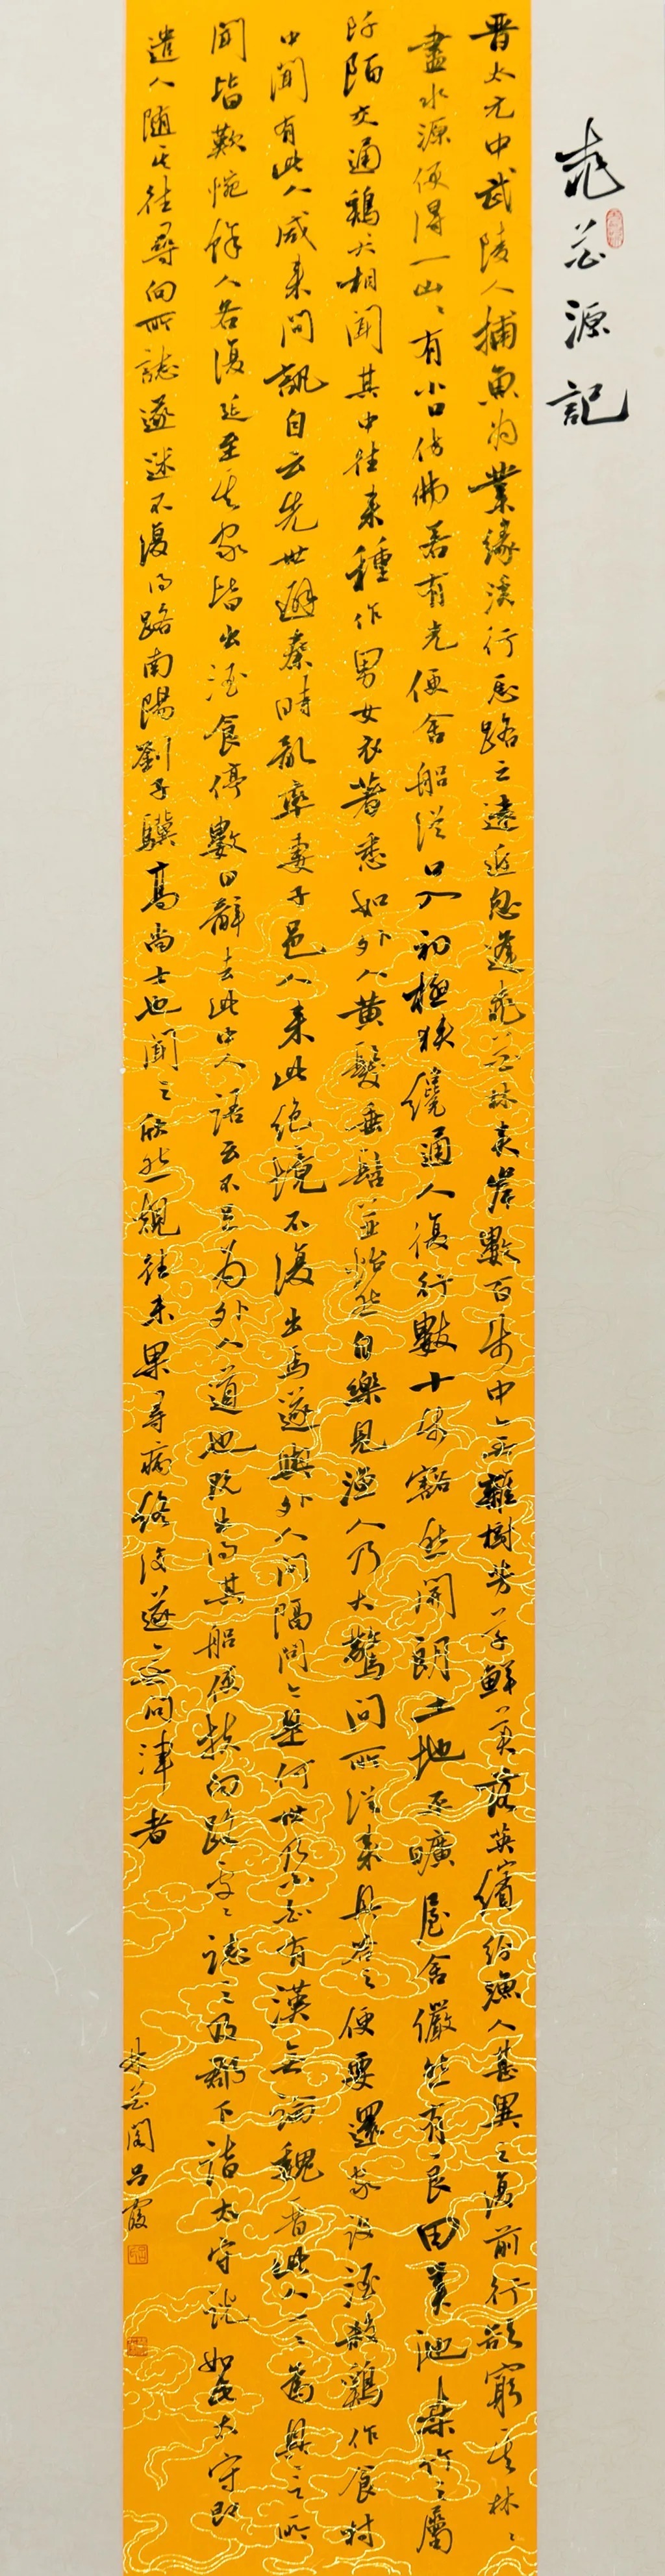 桃花源記
晋太元中武陵人捕魚为業緣溪行忘路之遠近忽逢桃花林夹岸數百步中無雜樹芳草鮮美落英繽紛漁人甚異之復前行欲窮其林〻
盡水源便得一山〻有小口仿佛若有光便舍船從口入初極狹纔通人復行數十步豁然開朗土地平曠屋舍儼然有良田美池桑竹之屬
阡陌交通鷄犬相聞其中往来種作男女衣著悉如外人黄髮垂髫並怡然自樂見漁人乃大驚問所從来具答之便要還家設酒殺鷄作食村
中聞有此人咸来問訊自云先世避秦時亂率妻子邑人来此絶境不復出焉遂與外人間隔問今是何世乃不知有漢無論魏晋此人一〻為具言所
聞皆歎惋餘人各復延至其家皆出酒食停數日辭去此中人語云不足为外人道也既出得其船便扶向路處〻誌之及郡下詣太守說如此太守即
遣人随其往尋向所誌遂迷不復得路南陽劉子驥高尚士也聞之欣然規往未果尋病終後遂無問津者
花閣呂霞